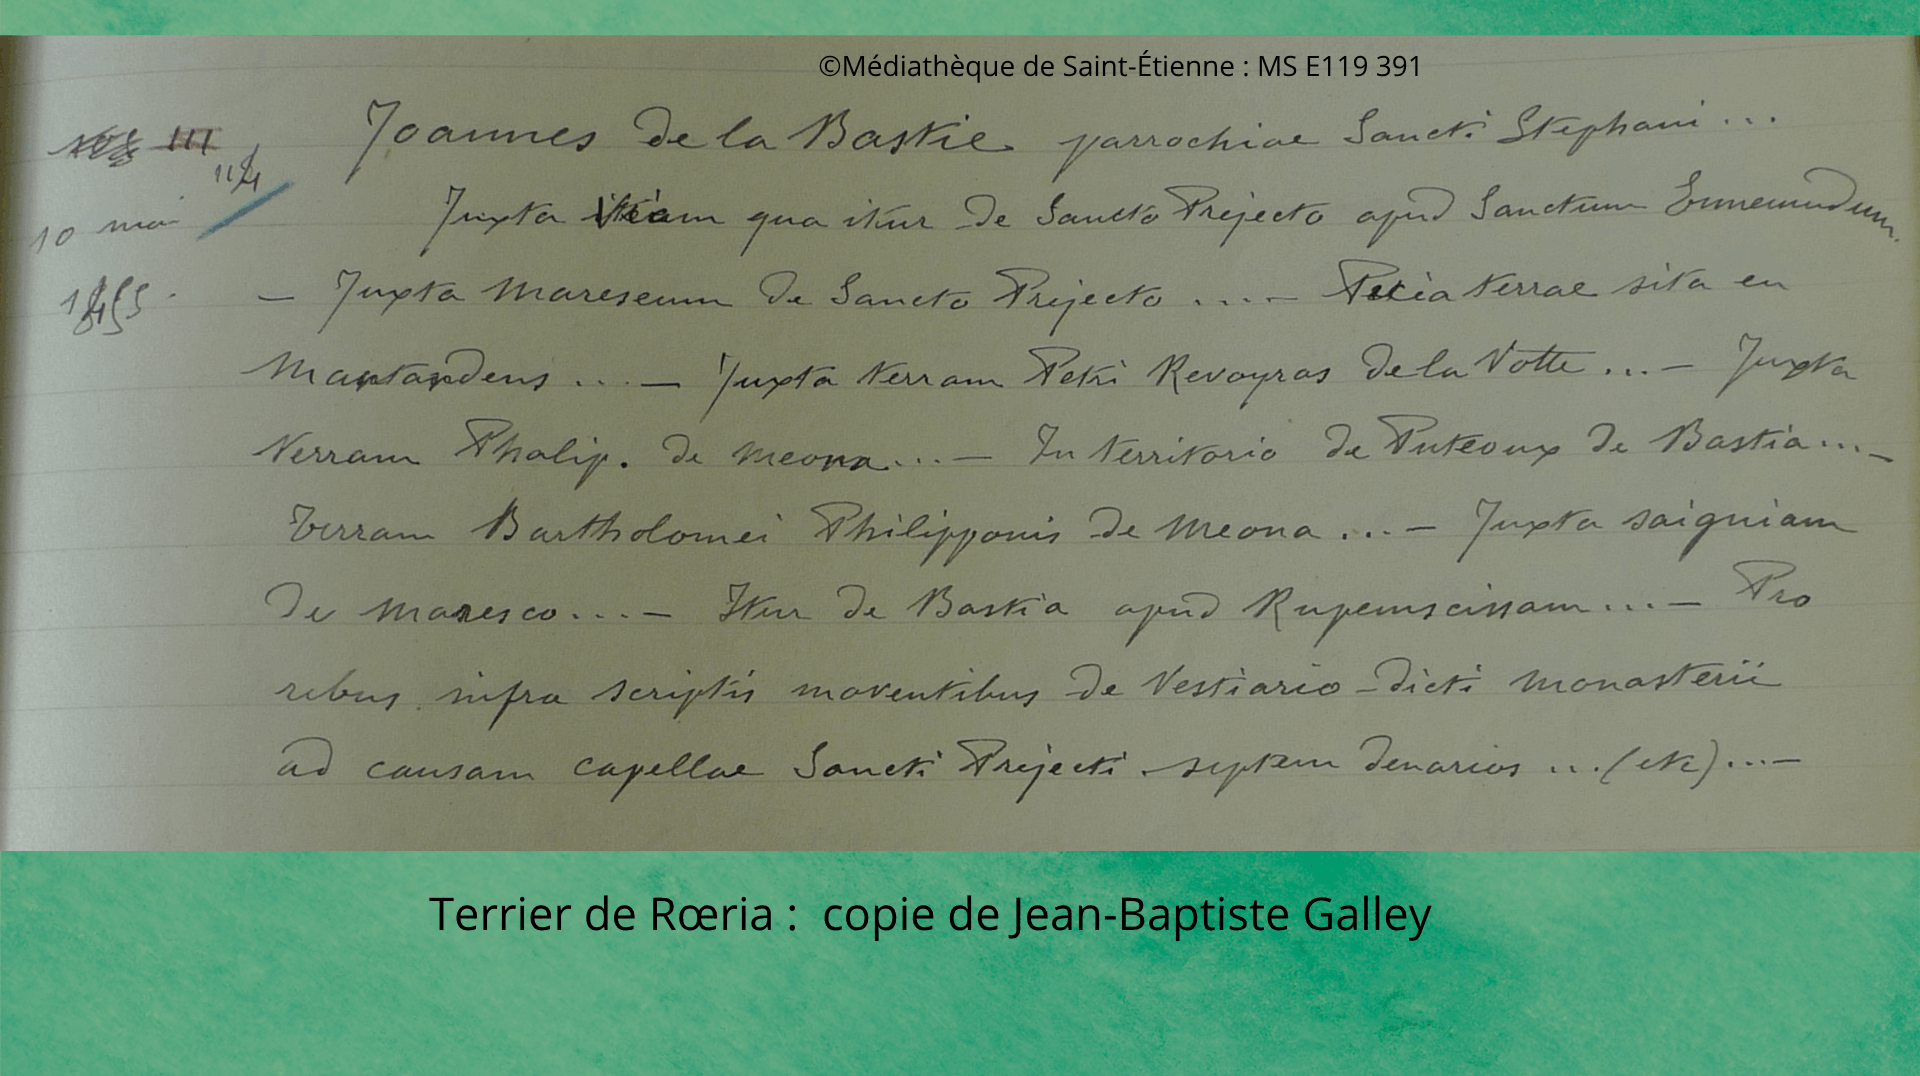 ©Médiathèque de Saint-Étienne : MS E119 391
111
114
10 mai
1455.
Joannes de la Bastie parrochiae Sancti Stephani ...
Juxta viam qua itur de Sancto Prejecto apud Sanctum Ennemundum.
— Juxta Mareseum de Sancto Prejecto .... — Petia terrae sita en
Mantandens ... — Juxta terram Petri Revoyras de la Votte ... — Juxta
terram Phalip. de Meona ... — In territorio de Puteoux de Bastia ... —
Terram Bartholomei Philipponis de Meona ... — Juxta saigniam
de Maresco ... — Itur de Bastia apud Rupemscissam ... — Pro
rebus infra scriptis moventibus de Vestiario dicti monasterii
ad causam capellae Sancti Prejecti septem denarios ... (etc) ... —
Terrier de Rœria : copie de Jean-Baptiste Galley